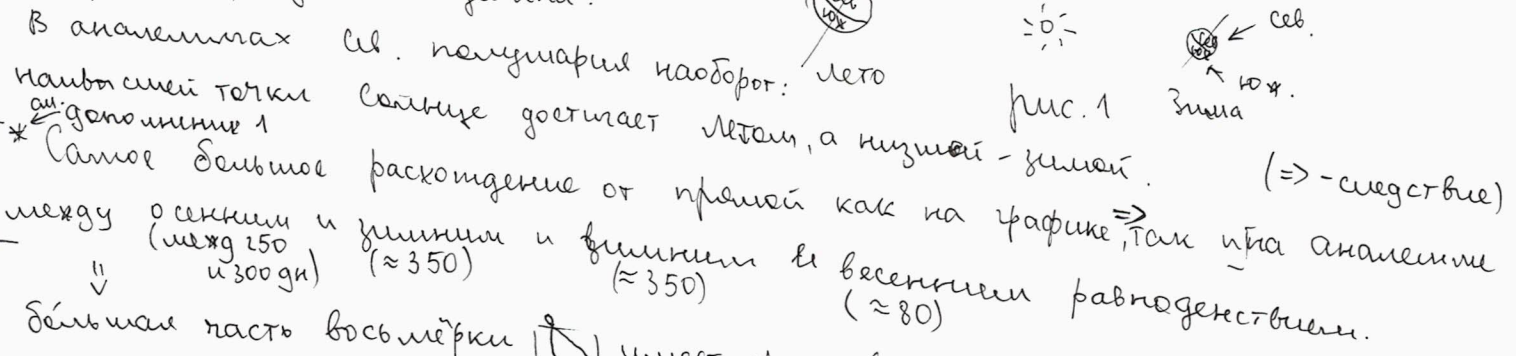 В аналеммах сев. полушария наоборот: лето
сев.
юж.
рис. 1 Зима
наивысшей точки Солнце достигает летом, а низшей - зимой.
* см. дополнение 1
(=> - следствие)
Самое большое расхождение от прямой как на графике, => так и на аналемме
между осенним и зимним и зимним и весенним равноденствием.
(межд 250 и 300 дн) (≈ 350) (≈ 350) (≈ 80)
бо́льшая часть восьмёрки